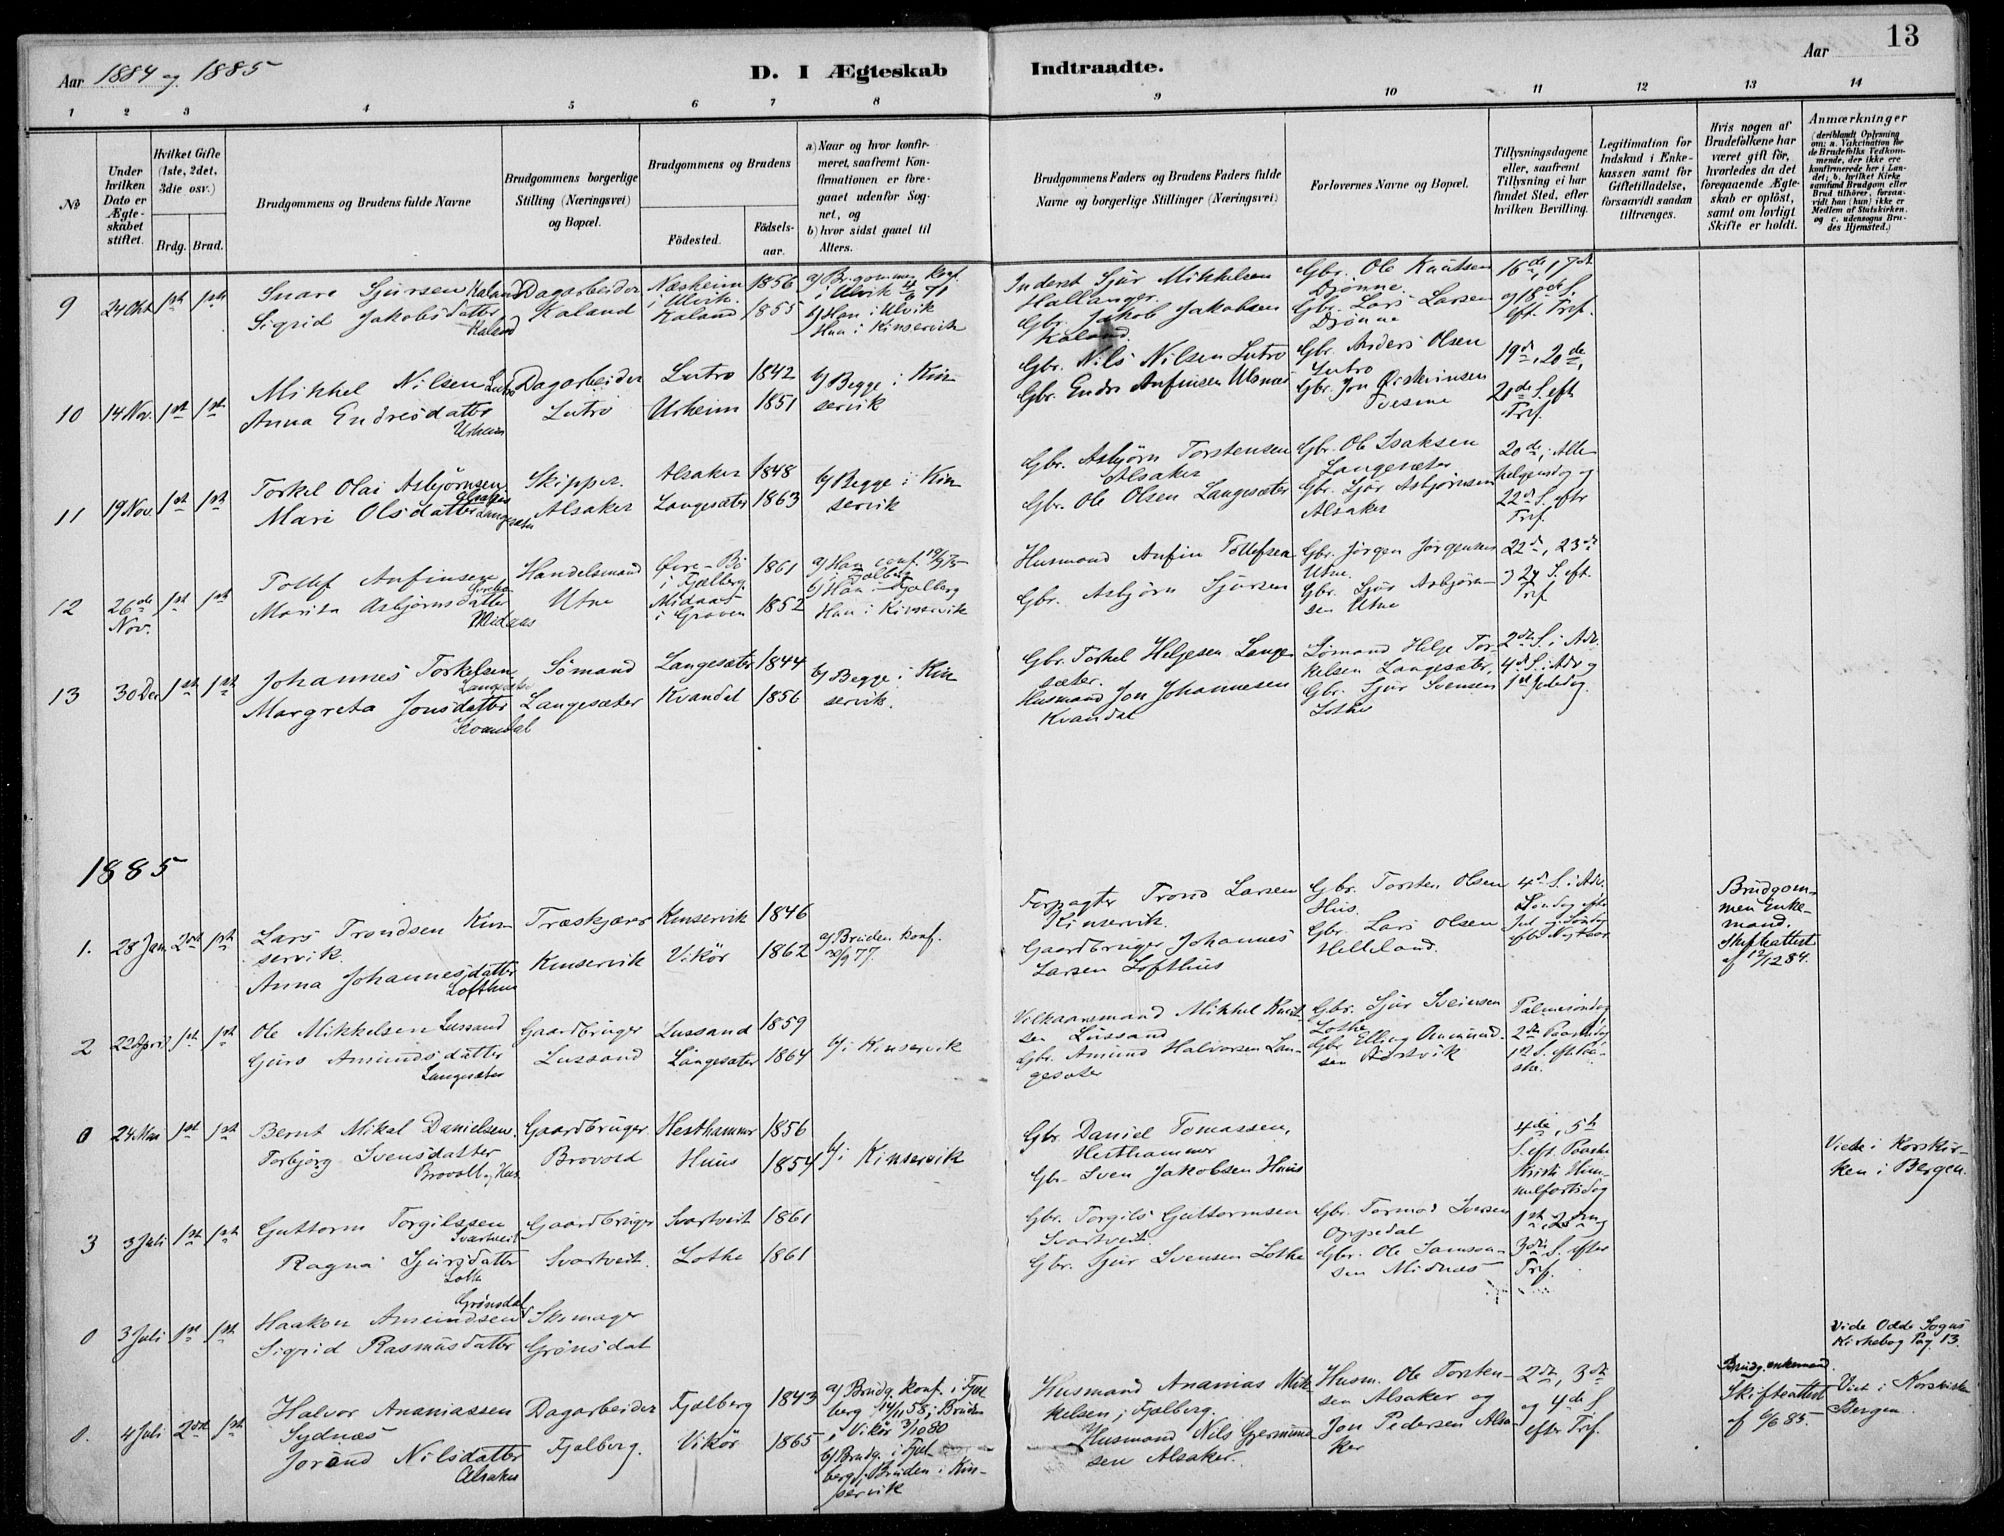 13
Aar 1884 og 1885
D. I Ægteskab Indtraadte.
Aar
1 2 3 4 5 6 7 8 9 10 11 12 13 14
No
Under hvilken Dato er Ægteskabet stiftet.
Hvilket Gifte (1ste, 2det, 3die osv.)
Brdg. Brud.
Brudgommens og Brudens fulde Navne
Brudgommens borgerlige Stilling (Næringsvei) og Bopæl.
Brudgommens og Brudens
Fødested.
Fødselsaar.
a) Naar og hvor konfirmeret, saafremt Konfirmationen er foregaaet udenfor Sognet, og
b) hvor sidst gaaet til Alters.
Brudgommens Faders og Brudens Faders fulde Navne og borgerlige Stillinger (Næringsvei)
Forlovernes Navne og Bopæl.
Tillysningsdagene eller, saafremt Tillysning ei har fundet Sted, efter hvilken Bevilling.
Legitimation for Indskud i Enkekassen samt for Giftetilladelse, forsaavidt saadan tiltrænges.
Hvis nogen af Brudefolkene har været gift før, hvorledes da det foregaaende Ægteskab er opløst, samt om lovligt Skifte er holdt.
Anmærkninger
(deriblandt Oplysning om: a. Vakcination for de Brudefolks Vedkommende, der ikke ere konfirmerede her i Landet; b. hvilket Kirkesamfund Brudgom eller Brud tilhører, forsaavidt han (hun) ikke er Medlem af Statskirken, og c. udensogns Brudes Hjemsted.)
9 24 Okt 1st 1st
Snare Sjursen Kaland
Sigrid Jakobsdatter Kaland
Dagarbeider
Kaland
Næsheim i Ulvik. 1856
Kaland 1855
a) Brdgommen konf. i Ulvik 4/6 71
b) Han i Ulvik
Hun i Kinservik
Inderst Sjur Mikkelsen
Hallanger.
Gbr. Jakob Jakobsen
Kaland.
Gbr. Ole Knutsen
Djønne.
Gbr. Lars Larsen
Djønne
16de, 17de
og 18de S.
eft. Tref.
10 14 Nov. 1st 1st
Mikkel Nilsen Lutro
Anna Endresdatter
Urheim
Dagarbeider
Lutro
Lutro 1842
Urheim 1851
b) Begge i Kinservik
Gbr. Nils Nilsen Lutro
Gbr. Endre Anfinsen Ulsnes
Gbr. Anders Olsen
Lutro
Gbr. Jon
19de, 20de,
21de S. eft
Trf.
11 19 Nov. 1st 1st
Torkel Olai Asbjørnsen
Alsaker
Mari Olsdatter Langesæter
Skipper.
Alsaker
Alsaker 1848
Langesæter 1863
b) Begge i Kinservik
Gbr. Asbjørn Torstensen
Alsaker
Gbr. Ole Olsen Langesæter
Gbr. Ole Isaksen
Langesæter
Gbr. Sjur Asbjørnsen
Alsaker
20de, Alle
helgensdag og
22de S. efter
Trf.
12 26de Nov. 1st 1st
Tollef Anfinsen
Marita Asbjørnsdatter
Midnes
Handelsmand
Utne
Øvre-Bø i Fjælberg 1861
Midnes i Graven 1852
a) Han conf. i Fjælberg
b) Han i Fjælberg
Hun i Kinservik
Husmand Anfin Tollefsen
Gbr. Asbjørn Sjursen
Gbr. Jørgen Jørgensen
Utne.
Gbr. Sjur Asbjørnsen Utne
22de, 23de
24 S. eft.
Trf.
13 30 Dec 1st 1st
Johannes Torkelsen
Langesæter
Margreta Jonsdatter
Kvandal
Sømand
Langesæter
Langesæter 1844
Kvandal 1856
b) Begge i Kinservik.
Gbr. Torkel Helgesen Langesæter.
Husmand Jon Johannesen
Kvandal
Sømand Helge Torkelsen Langesæter,
Gbr. Sjur Svensen
Lothe
2den S. i Adv.
4de S. i Adv og
1st Juledag.
1885
1. 28 Jan 2det 1st
Lars Trondsen Kinservik.
Anna Johannesdatter
Lofthus
Træskjærer
Kinservik
Kinservik 1846
Vikør 1862
a) Bruden konf.
30/9 77.
Forpagter Trond Larsen
Kinservik.
Gaardbruger Johannes
Larsen Lofthus
Gbr. Torsten Olsen
Hus.
Gbr. Lars Olsen
Helleland.
4de S. i Adv.
Søndag efter
Jul og Søndag
efter Nytaar
Brudgommen Enkemand.
Skifteattest
af 12/12 84.
2 22 April 1st 1st
Ole Mikkelsen Lussand
Guro Amundsdatter
Langesæter
Gaardbruger
Lussand
Lussand 1859
Langesæter 1864
b) i Kinservik
Vilkaarsmand Mikkel Knutsen Lussand
Gbr. Amund Halvorsen Langesæter
Gbr. Sjur Sveinsen
Lothe
Gbr. Elling Ammundsen
Palmesøndag,
2den Paaskedag
1st S. eft. Paaske.
0 24 Mai 1st 1st
Bernt Mikal Danielsen.
Torbjørg Svensdatter
Brovold og Huus
Gaardbruger
Brovold
Hesthammer 1856
Huus 1854
b) i Kinservik
Gbr. Daniel Tomassen,
Hesthammer
Gbr. Sven Jakobsen Huus
4de, 5te
S. eft. Paaske
Kristi Himmelfartsdag
Viede i Korskirken i Bergen.
3 3 Juli 1st 1st
Guttorm Torgilssen
Svartveit
Ragna Sjursdatter
Lothe
Gaardbruger
Svartveit.
Svartveit 1861
Lothe 1861
Gbr. Torgils Guttormsen
Svartveit.
Gbr. Sjur Svensen Lothe
Gbr. Tormod Iversen
Oppedal
Gbr. Ole Samsonsen Midnæs
1st, 2den og
3die S. efter
Trf.
0 3 Juli 1st 1st
Haakon Amundsen Grønsdal
Sigrid Rasmusdatter
Skomager
Grønsdal
Vide Odde Sogns
Kirkebog Pag 13.
0. 4 Juli 2det 1st
Halvor Ananiassen
Sydnæs
Jorand Nilsdatter
Alsaker
Dagarbeider
Fjælberg.
Fjælberg 1843
Vikør 1865
a) Brudg. konf. i Fjelberg 58; Bruden
i Vikør 3/10 80
b) Brudg. i Fjelberg; Bruden i Kinservik
Husmand Ananias Mikkelsen, Fjælberg.
Husmand Nils Gjermundsen Alsaker.
Husm. Ole Torstensen Alsaker og
Jon Pedersen Alsaker
2den, 3die
og 4de S
efter Trf.
Brudg. enkemand.
Skifteattest
af 6/6 85.
Viet i Korskirken
Bergen.